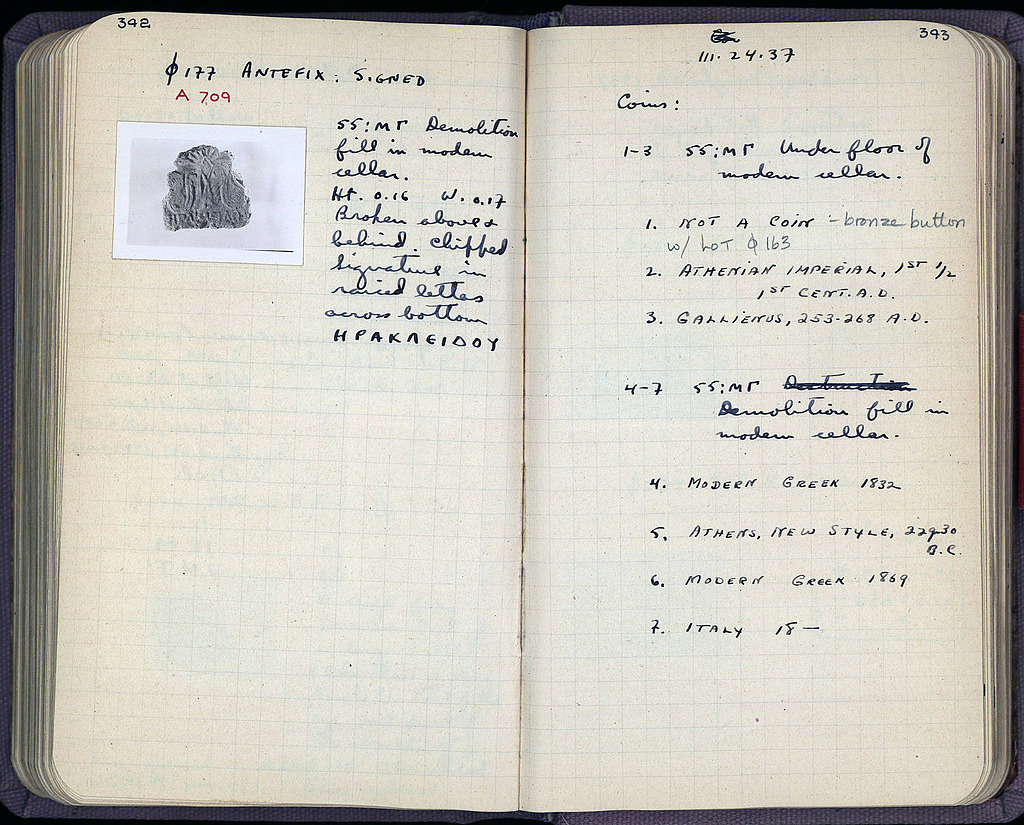 342
ϕ177 ANTEFIX: SIGNED
A 709
55:ΜΓ Demolition
fill in modern
cellar.
Ht. 0.16 W. 0.17
Broken above &
behind. chipped
Signature in
raised letters
across bottom
ΗΡΑΚΛΕΙΔΟΥ
343
III. 24. 37
Coins:
1-3 55:ΜΓ Under floor of
modern cellar.
1. NOT A COIN - bronze button
w/ LOT ϕ163
2. ATHENIAN IMPERIAL, 1ST 1/2
1ST CENT. A.D.
3. GALLIENUS, 253-268 A.D.
4-7 55:ΜΓ Destruction
Demolition fill in
modern cellar.
4. MODERN GREEK 1832
5. ATHENS, NEW STYLE, 229-30
B.C.
6. MODERN GREEK 1869
7. ITALY 18—